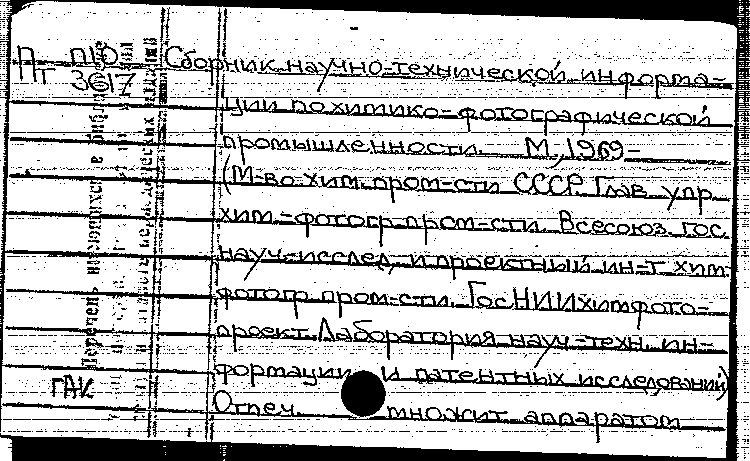 Пт П10
3617
Сборник научно-технической информа-
ции по химико-фотографической
промышленности. М., 1969-
(М-во хим. пром-сти СССР. Глав. упр.
хим.-фотогр. пром-сти. Всесоюз. гос.
науч.-исслед. и проектный ин-т хим.
фотогр. пром-сти. ГосНИИхимфото-
проект. Лаборатория науч.-техн. ин-
формации и патентных исследований)
Отпеч. множит. аппаратом
ГАК
Перечень имеющихся в библи